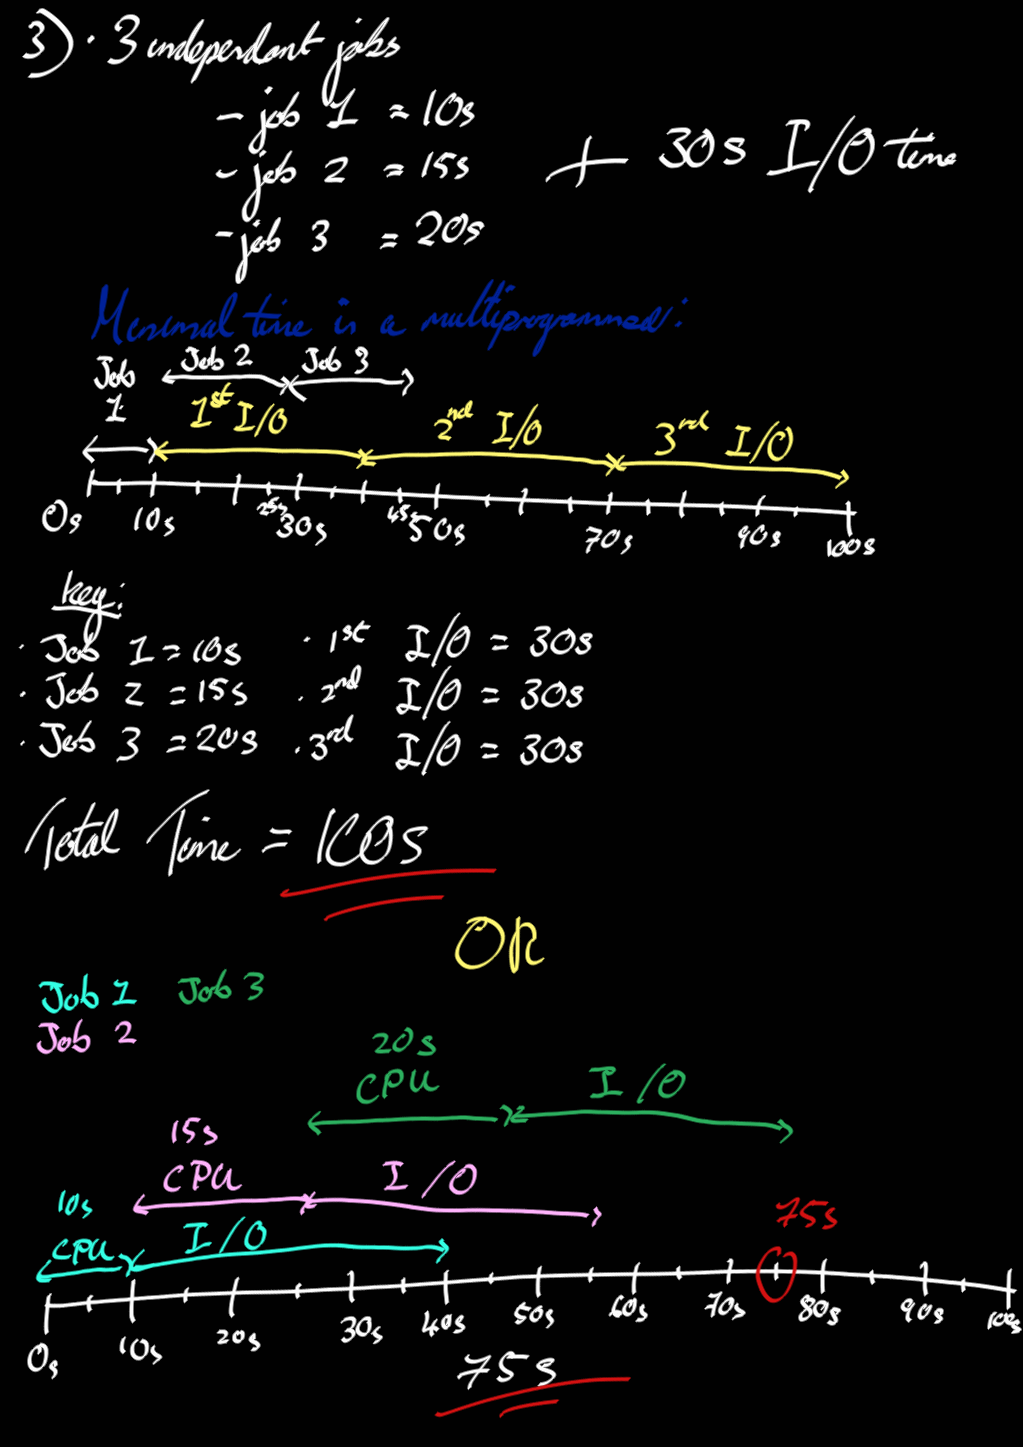 3) · 3 independant jobs
- job 1 = 10s
- job 2 = 15s
- job 3 = 20s
+ 30s I/O time
Minimal time is a multiprogrammed:
Job 1
Job 2
Job 3
1st I/O
2nd I/O
3rd I/O
0s 10s 25s 30s 45s 50s 70s 90s 100s
key:
· Job 1 = 10s · 1st I/O = 30s
· Job 2 = 15s · 2nd I/O = 30s
· Job 3 = 20s · 3rd I/O = 30s
Total Time = 100s
OR
Job 1 Job 3
Job 2
20s
CPU I/O
15s
CPU I/O
10s
CPU I/O
75s
0s 10s 20s 30s 40s 50s 60s 70s 80s 90s 100s
75s